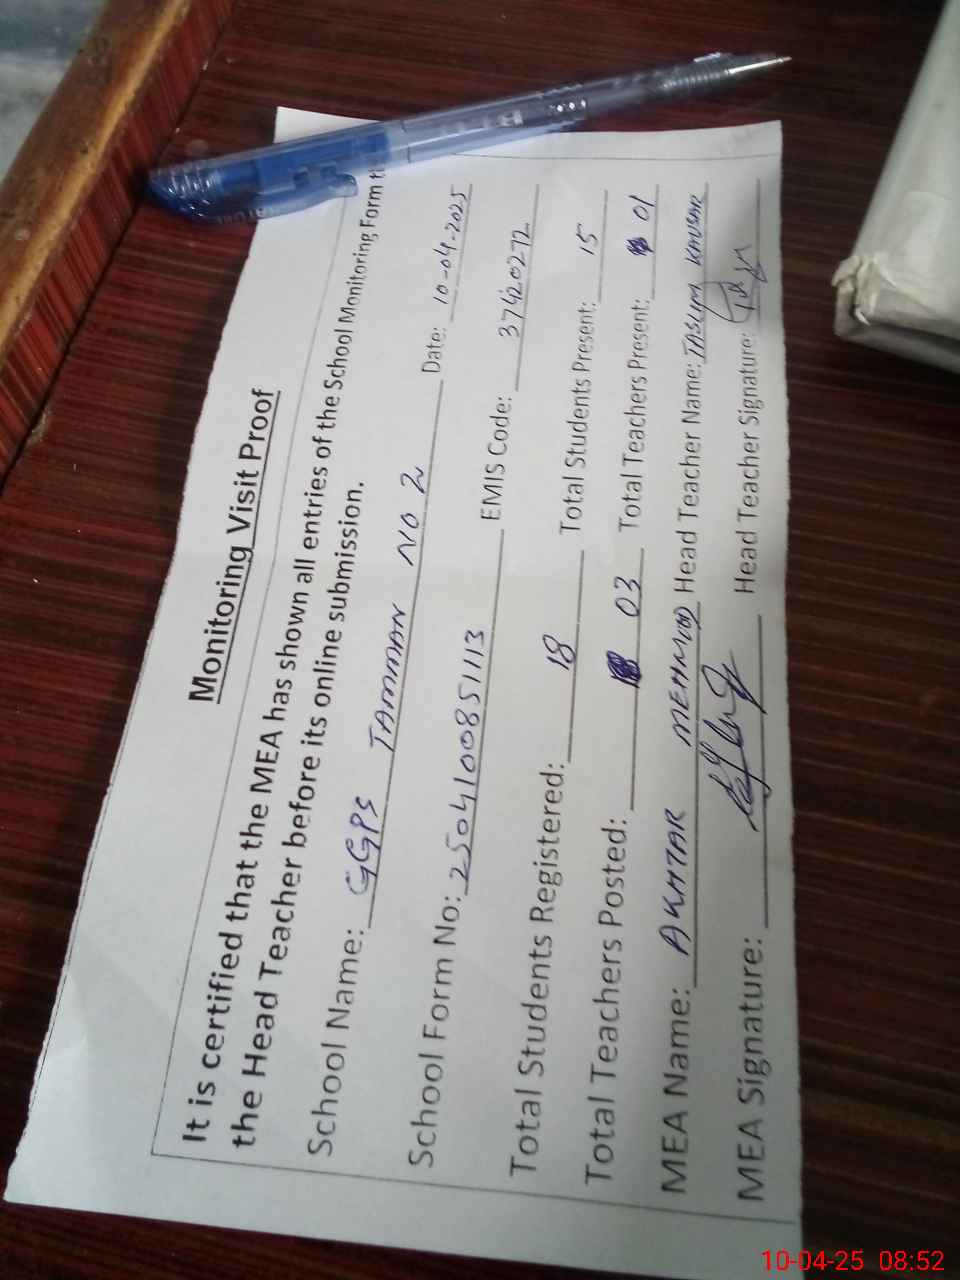 Monitoring Visit Proof
It is certified that the MEA has shown all entries of the School Monitoring Form
the Head Teacher before its online submission.
School Name: GGPS TAMMAN NO 2 Date: 10-04-2025
School Form No: 2504100851113 EMIS Code: 37420272
Total Students Registered: 18 Total Students Present: 15
Total Teachers Posted: 03 Total Teachers Present: 01
MEA Name: AKHTAR MEHMOOD Head Teacher Name: TASLIM KAUSAR
MEA Signature: Head Teacher Signature:
10-04-25 08:52